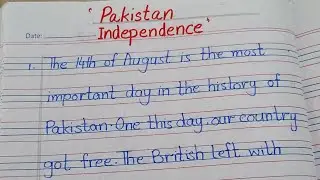 'Pakistan
Independence'
Date:
1. The 14th of August is the most
important day in the history of
Pakistan. One this day. our country
got free. The British left with